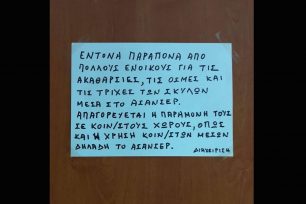 ΕΝΤΟΝΑ ΠΑΡΑΠΟΝΑ ΑΠΟ
ΠΟΛΛΟΥΣ ΕΝΟΙΚΟΥΣ ΓΙΑ ΤΙΣ
ΑΚΑΘΑΡΣΙΕΣ, ΤΙΣ ΟΣΜΕΣ ΚΑΙ
ΤΙΣ ΤΡΙΧΕΣ ΤΩΝ ΣΚΥΛΩΝ
ΜΕΣΑ ΣΤΟ ΑΣΑΝΣΕΡ.
ΑΠΑΓΟΡΕΥΕΤΑΙ Η ΠΑΡΑΜΟΝΗ ΤΟΥΣ
ΣΕ ΚΟΙΝ/ΣΤΟΥΣ ΧΩΡΟΥΣ, ΟΠΩΣ
ΚΑΙ Η ΧΡΗΣΗ ΚΟΙΝ/ΣΤΩΝ ΜΕΣΩΝ
ΔΗΛΑΔΗ ΤΟ ΑΣΑΝΣΕΡ.
ΔΙΑΧΕΙΡΙΣΗ